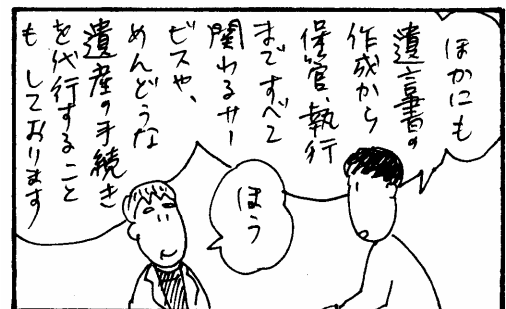 ほかにも
遺言書の
作成から
保管、執行
まですべて
関わるサー
ビスや、
めんどうな
遺産の手続き
を代行すること
もしております
ほう